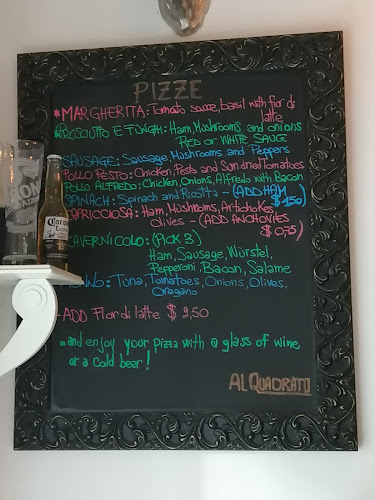 PIZZE
*MARGHERITA: Tomato sauce, basil with fior di
latte
PROSCIUTTO E FUNGHI: Ham, Mushrooms and onions
RED or WHITE SAUCE
SAUSAGE: Sausage, Mushrooms and Peppers
POLLO PESTO: Chicken, Pesto and Sundried Tomatoes
POLLO ALFREDO: Chicken, Onions, Alfredo with Bacon
SPINACH: Spinach and Ricotta - (ADD HAM
$1,50)
CAPRICCIOSA: Ham, Mushrooms, Artichokes
Olives - (ADD ANCHOVIES
$0,75)
CAVERNICOLO: (PICK 3)
Ham, Sausage, Würstel,
Pepperoni Bacon, Salame
Tuna, Tomatoes, Onions, Olives,
Oregano
- ADD Fior di latte $2,50
...and enjoy your pizza with a glass of wine
or a cold beer!
AL QUADRATO
Corona
Extra